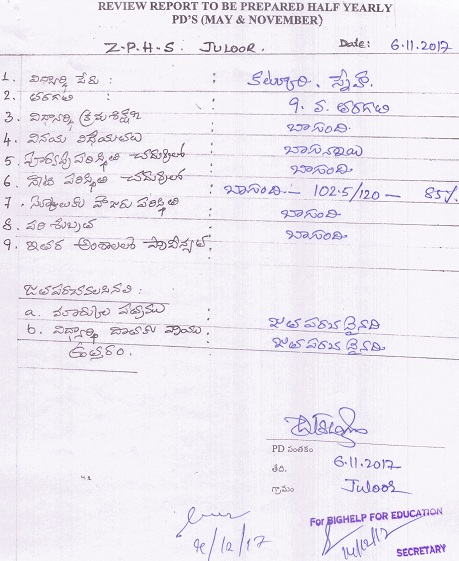 REVIEW REPORT TO BE PREPARED HALF YEARLY
PD'S (MAY & NOVEMBER)
Z-P-H-S. JULOOR. Date: 6.11.2017
1. విద్యార్థి పేరు : స్నేహ.
2. తరగతి : 9. వ. తరగతి
3. విద్యార్థి క్రమశిక్షణ : బాగుంది.
4. వినయ విధేయతలు : బాగున్నాయి
5. పరిస్థితి చదువులో : బాగుంది.
6. పరిస్థితి చదువులో : బాగుంది - 102.5/120 - 85%.
7. హాజరు పరిస్థితి : బాగుంది
8. పరిశుభ్రత : బాగుంది.
9. ఇతర అంశాలలో :
జతపరచవలసినవి :
a. మార్కుల పత్రము : జతపరచడైనది
b. విద్యార్థి రాయు : జతపరచడైనది
ఉత్తరం.
PD సంతకం
తేది. 6.11.2017
గ్రామం Juloor
For BIGHELP FOR EDUCATION
/12/17
14/12/17
SECRETARY